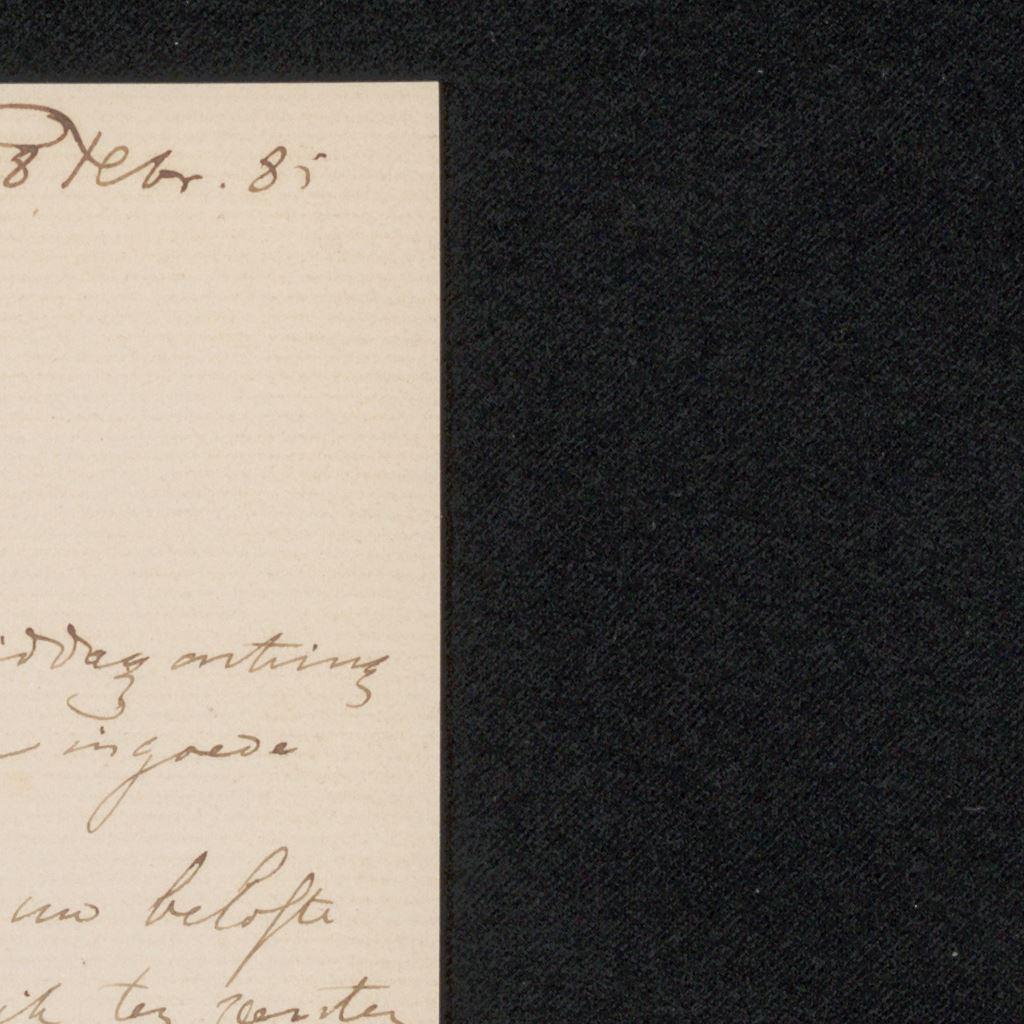 8 Febr. 85
iddag ontving
in goede
uw belofte
ik ten zeerste